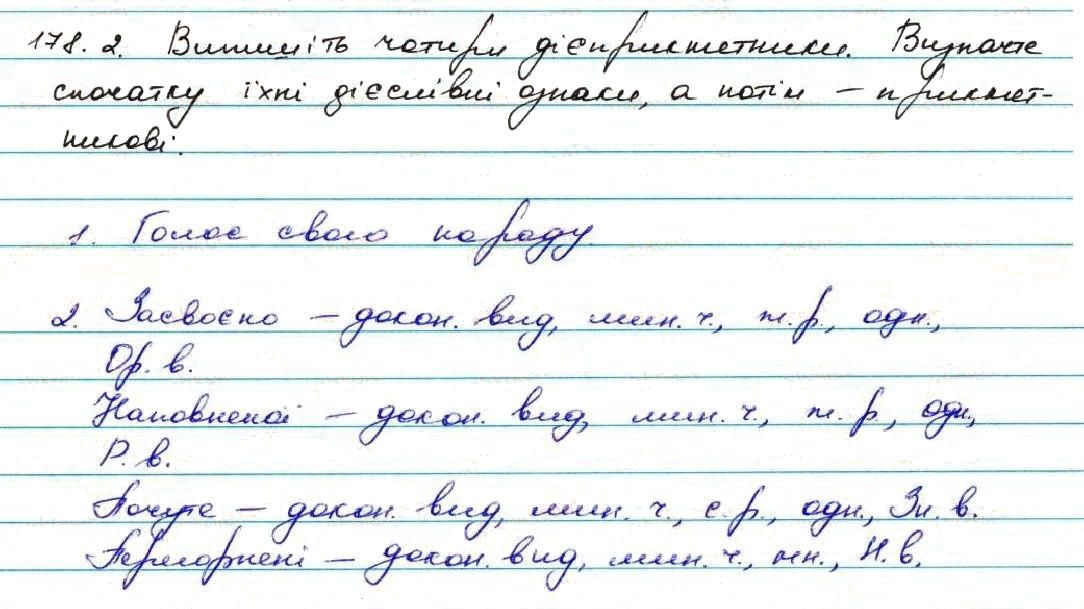 178. 2. Випишіть чотири дієприкметники. Визначте
спочатку їхні дієслівні ознаки, а потім – прикмет-
никові.
1. Голос свого народу.
2. Засвоєно – докон. вид, мин. ч., ж. р., одн.,
Ор. в.
Наповненої – докон. вид, мин. ч., ж. р., одн.,
Р. в.
Почуте – докон. вид, мин. ч., с. р., одн., Зн. в.
– докон. вид, мин. ч., мн., Н. в.